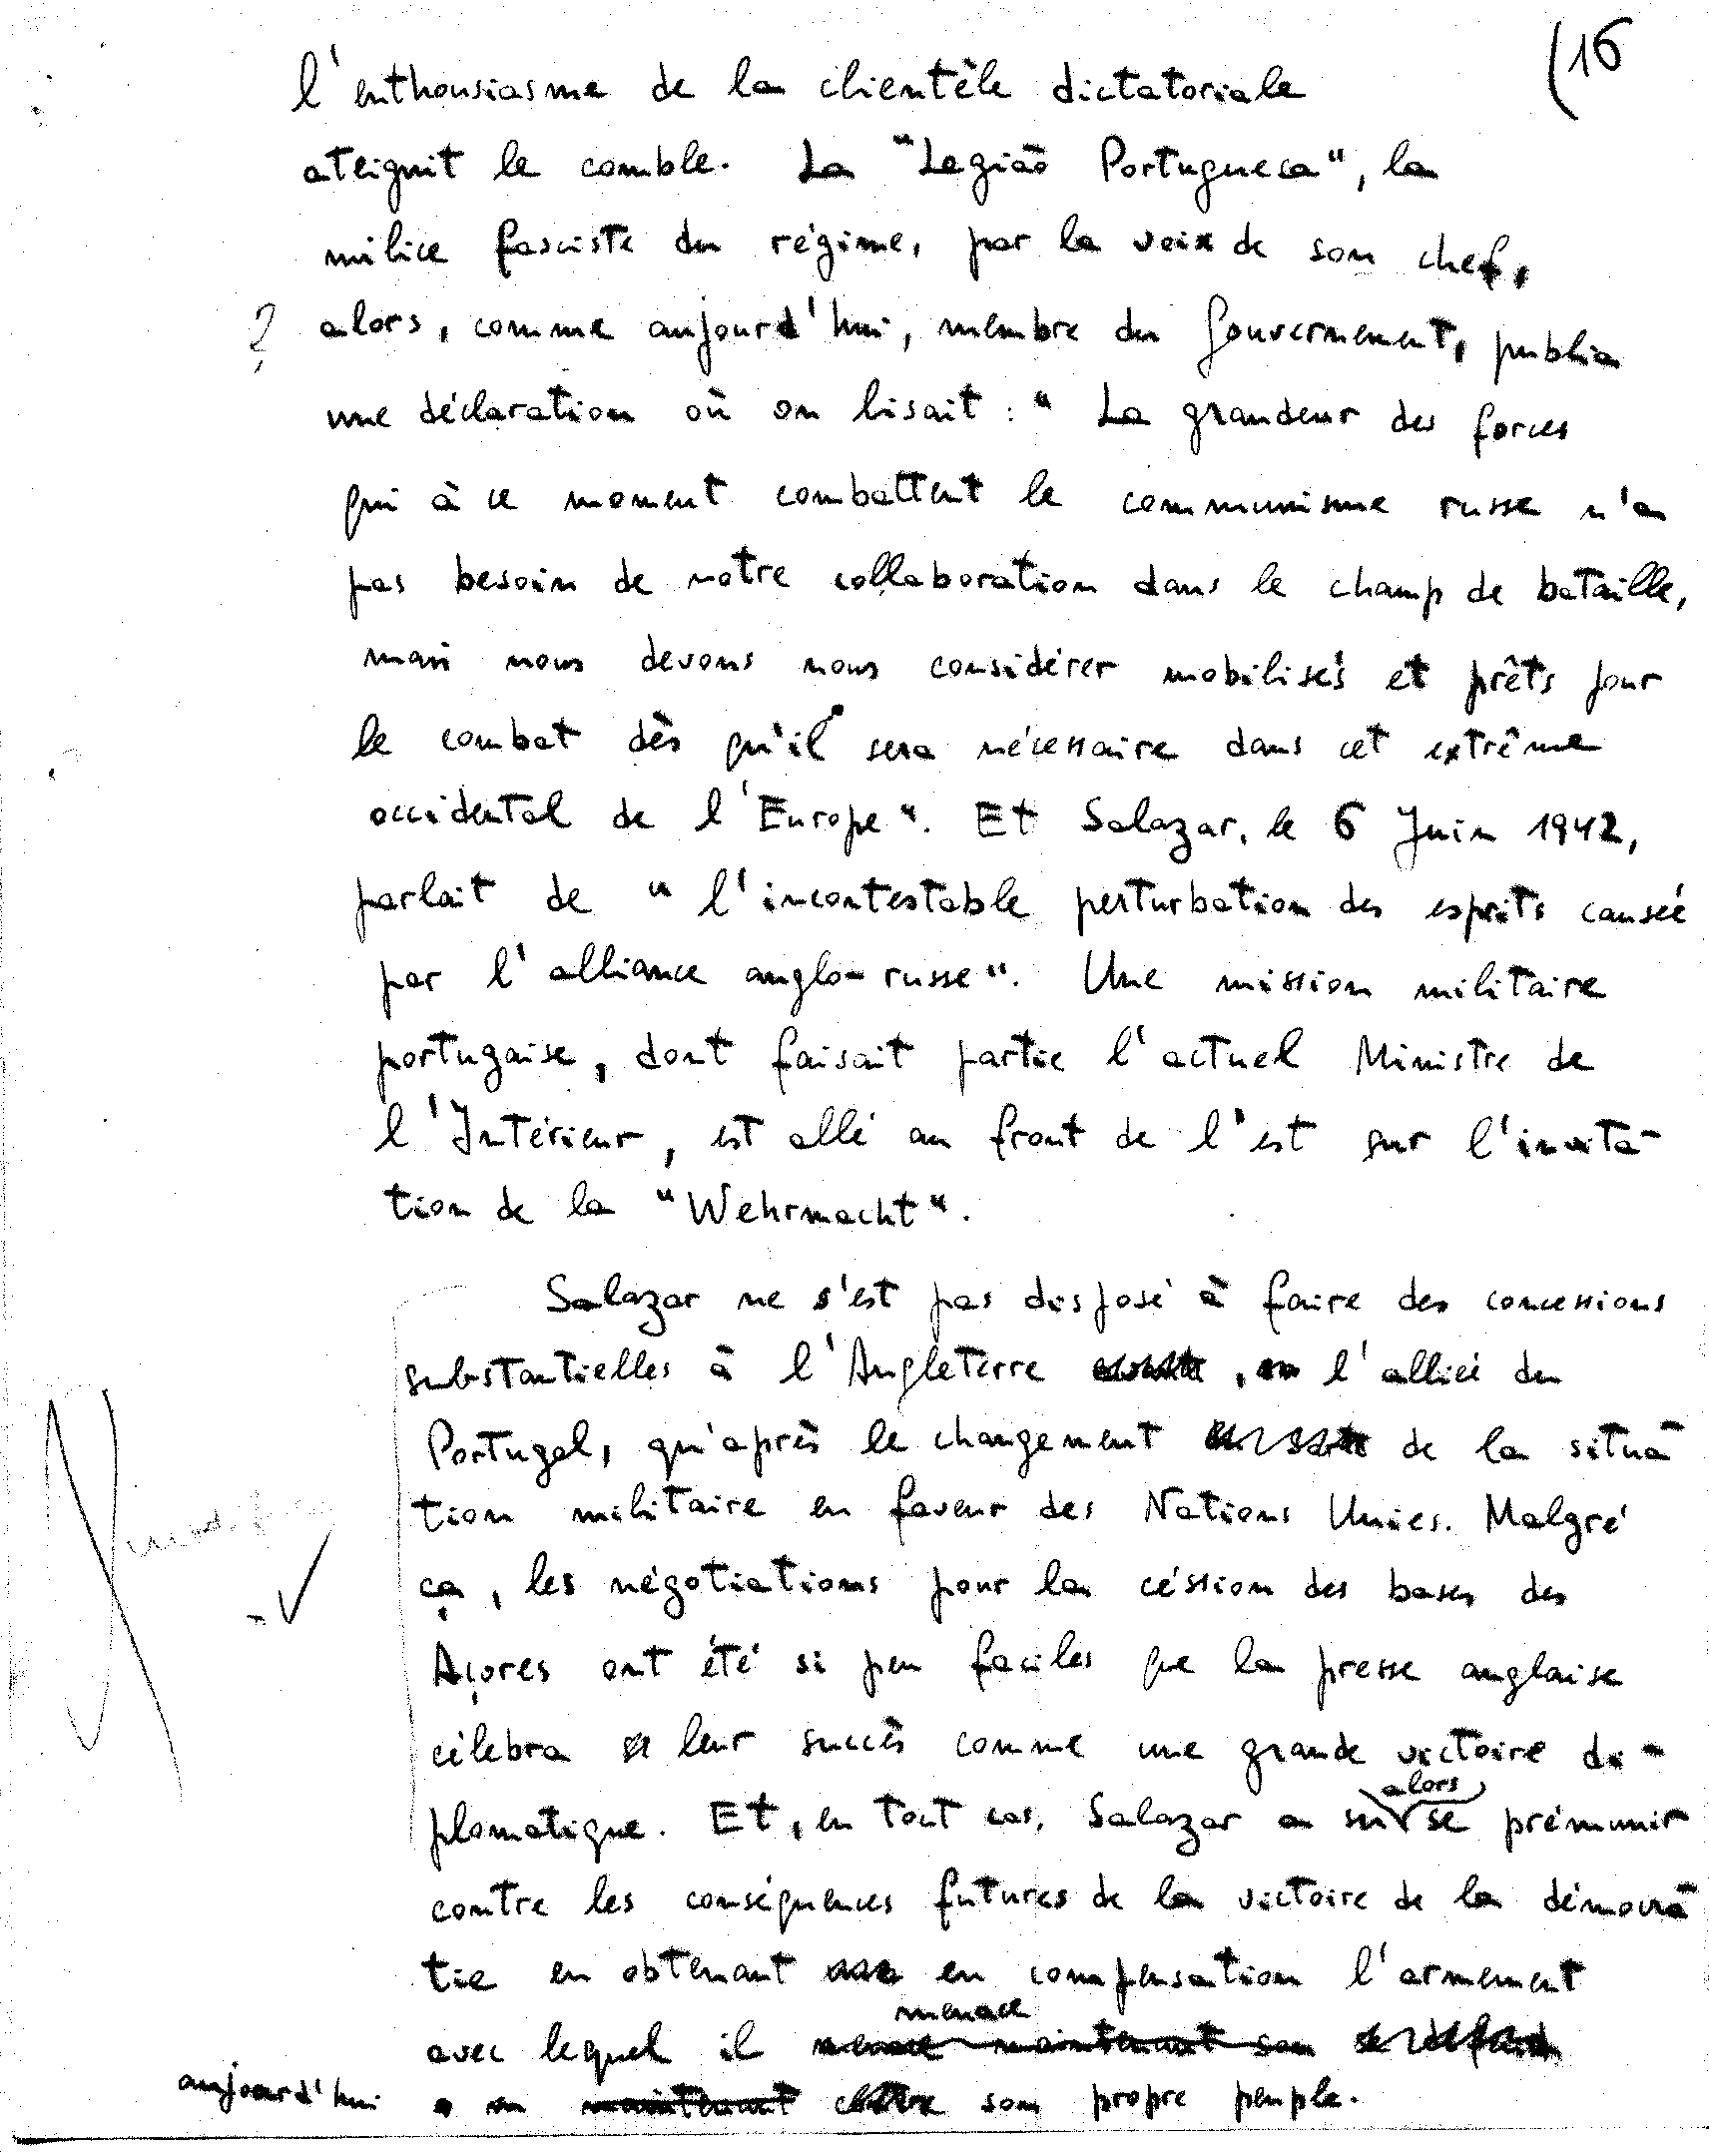 (16
l'enthousiasme de la clientèle dictatoriale
ateignit le comble. La "Legião Portugueca", la
milice fasciste du régime, par la voix de son chef,
? alors, comme aujourd'hui, membre du Gouvernement, publia
une déclaration où on lisait : " La grandeur des forces
qui à ce moment combattent le communisme russe n'a
pas besoin de notre collaboration dans le champ de bataille,
mais nous devons nous considérer mobilisés et prêts pour
le combat dès qu'il sera nécessaire dans cet extrême
occidental de l'Europe". Et Salazar, le 6 Juin 1942,
parlait de " l'incontestable perturbation des esprits causée
par l'alliance anglo-russe". Une mission militaire
portugaise, dont faisait partie l'actuel Ministre de
l'Intérieur, est allé au front de l'est sur l'invita-
tion de la "Wehrmacht".
Salazar ne s'est pas disposé à faire des concessions
substantielles à l'Angleterre , l'alliée du
Portugal, qu'après le changement de la situa-
tion militaire en faveur des Nations Unies. Malgré
ça, les négotiations pour la céssion des bases des
Açores ont été si peu faciles que la presse anglaise
célebra leur succès comme une grande victoire di-
alors
plomatique. Et, en tout cas, Salazar a su se prémunir
contre les conséquences futures de la victoire de la démocra-
tie en obtenant en compensation l'armement
menace
avec lequel il menace maintenant son
aujourd'hui maintenant son propre peuple.